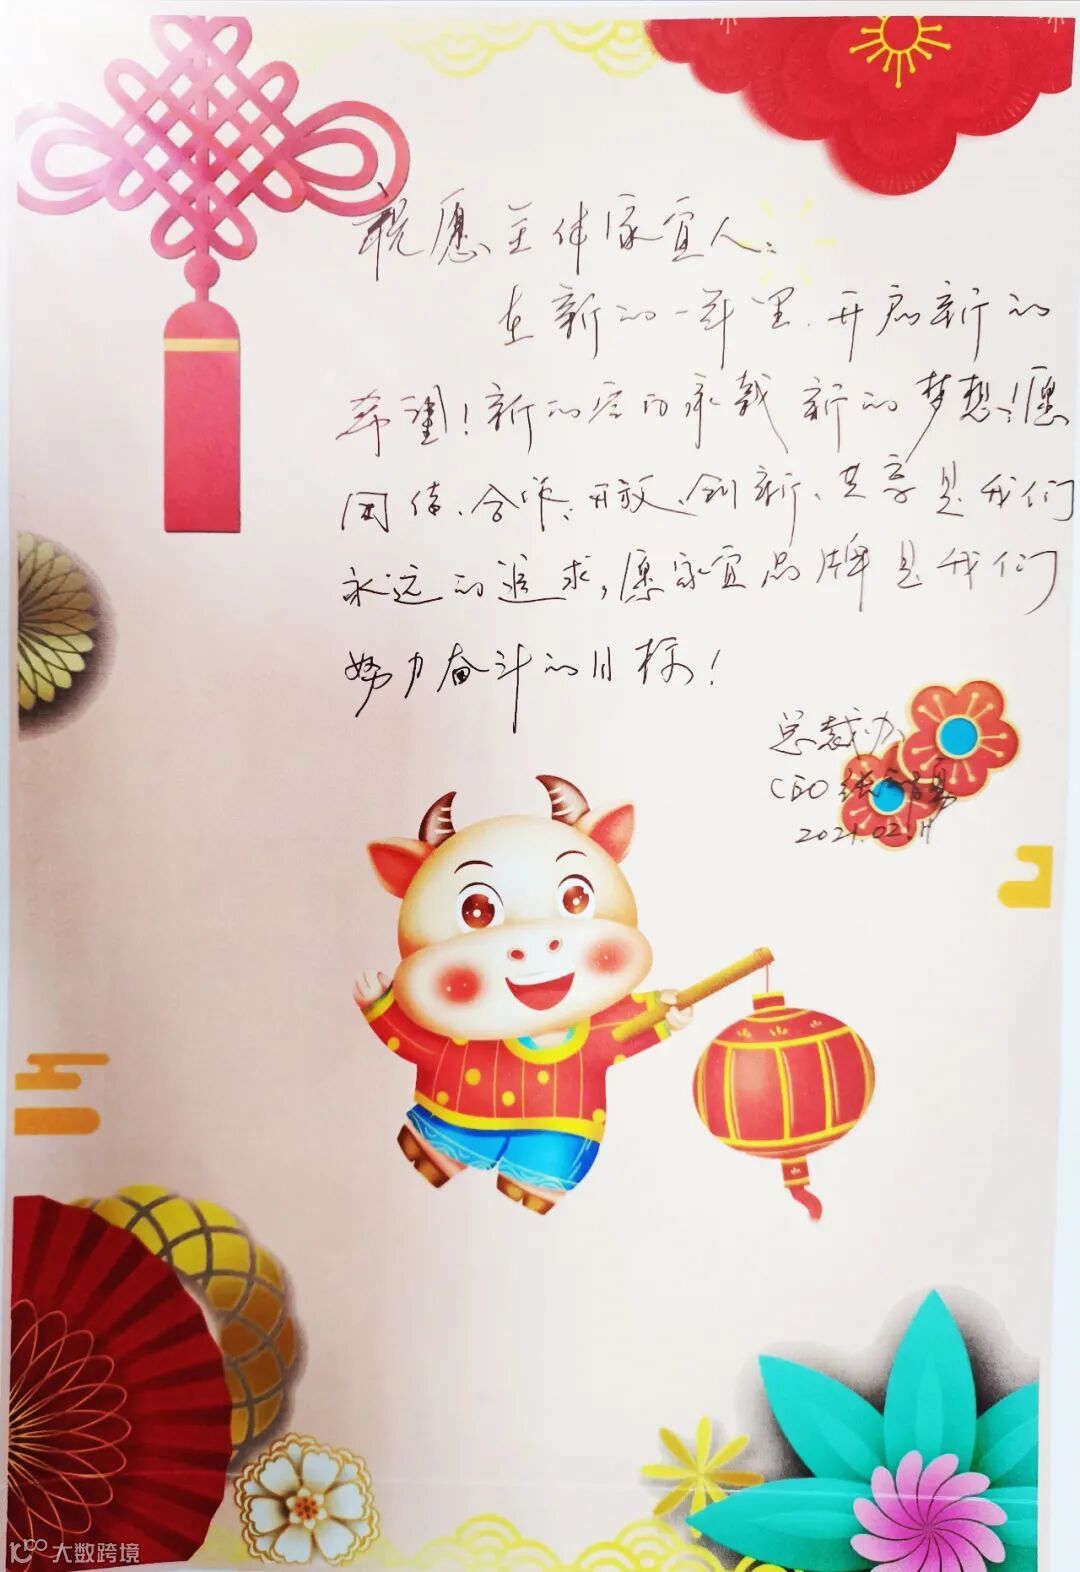 祝愿全体家宜人:
在新的一年里,开启新的
希望!新的空白承载新的梦想!愿
团结、合作、开放、创新、共享是我们
永远的追求,愿家宜品牌是我们
努力奋斗的目标!
总裁办
CEO 张
2021.02.
大数跨境